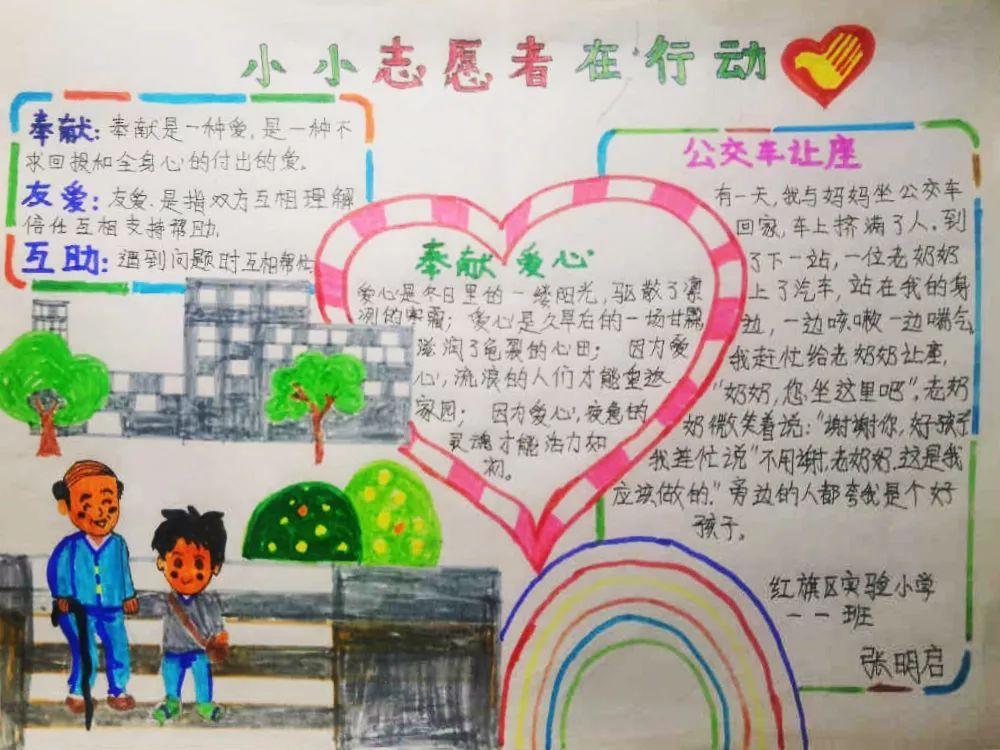 小小志愿者在行动
奉献：奉献是一种爱，是一种不
求回报和全身心的付出的爱。
友爱：友爱是指双方互相理解
信任互相支持帮助.
互助：遇到问题时互相帮忙
奉献 爱心
爱心是冬日里的一缕阳光，驱散了凛
冽的寒霜；爱心是久旱后的一场甘霖
滋润了龟裂的心田；因为爱
心，流浪的人们才能重返
家园；因为爱心，疲惫的
灵魂才能活力如
初。
公交车让座
有一天，我与妈妈坐公交车
回家，车上挤满了人.到
了下一站，一位老奶奶
上了汽车，站在我的身
边，一边咳嗽一边喘气
我赶忙给老奶奶让座.
"奶奶，您坐这里吧".老奶
奶微笑着说："谢谢你，好孩子
我连忙说"不用谢，老奶奶.这是我
应该做的."旁边的人都夸我是个好
孩子。
红旗区实验小学
一一班
张明启